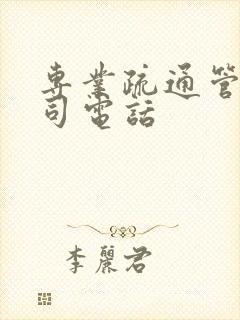 專業疏通管
司電話
李麗君